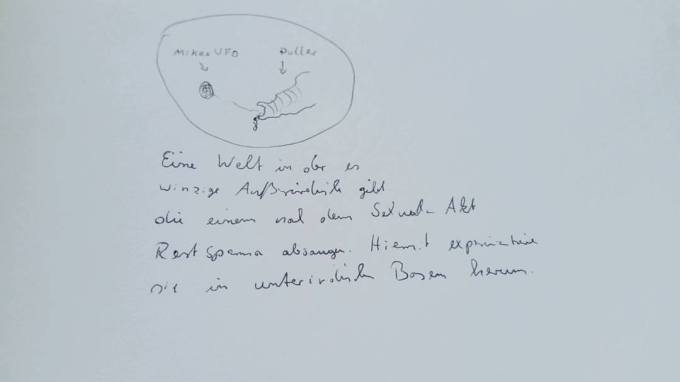 Mikro UFO
Puller
Eine Welt in der es
winzige Außerirdische gibt
die einem nach dem Sexual-Akt
Rest Sperma absaugen. Hiermit experimentieren
sie in unterirdischen Basen herum.